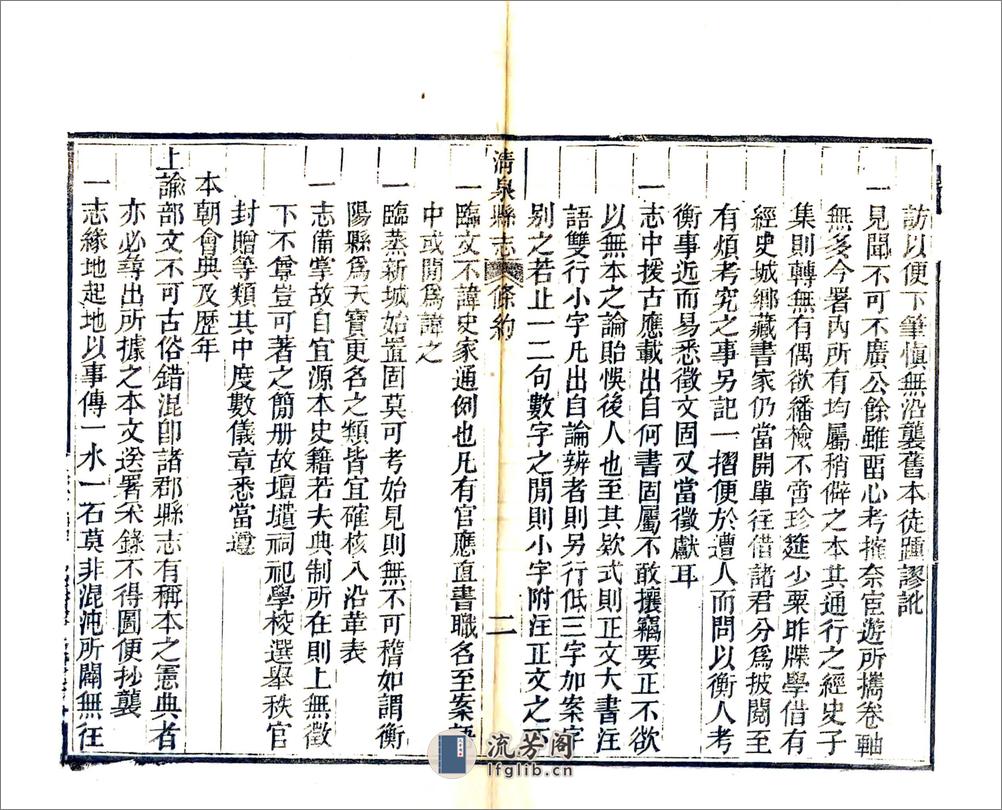 訪以便下筆慎無沿襲舊本徒踵謬訛
一見聞不可不廣公餘雖畱心考搉奈宦遊所攜卷軸
無多今署內所有均屬稍僻之本其通行之經史子
集則轉無有偶欲繙檢不啻珍筵少粟昨牒學借有
經史城鄉藏書家仍當開單往借諸君分為披閱至
有煩考究之事另記一摺便於遭人而問以衡人考
衡事近而易悉徵文固又當徵獻耳
一志中援古應載出自何書固屬不敢攘竊要正不欲
以無本之論貽悞後人也至其欵式則正文大書注
語雙行小字凡出自論辨者則另行低三字加案字
別之若止一二句數字之閒則小字附注正文之下
清泉縣志 條約 二
一臨文不諱史家通例也凡有官應直書職名至案語
中或閒為諱之
一臨蒸新城始置固莫可考始見則無不可稽如謂衡
陽縣為天寶更名之類皆宜確核入沿革表
一志備掌故自宜源本史籍若夫典制所在則上無徵
下不尊豈可著之簡册故壇壝祠祀學校選舉秩官
封贈等類其中度數儀章悉當遵
本朝會典及歷年
上諭部文不可古俗錯混卽諸郡縣志有稱本之憲典者
亦必尋出所據之本文送署采錄不得圖便抄襲
一志緣地起地以事傳一水一石莫非混沌所闢無往
流芳阁
lfglib.cn